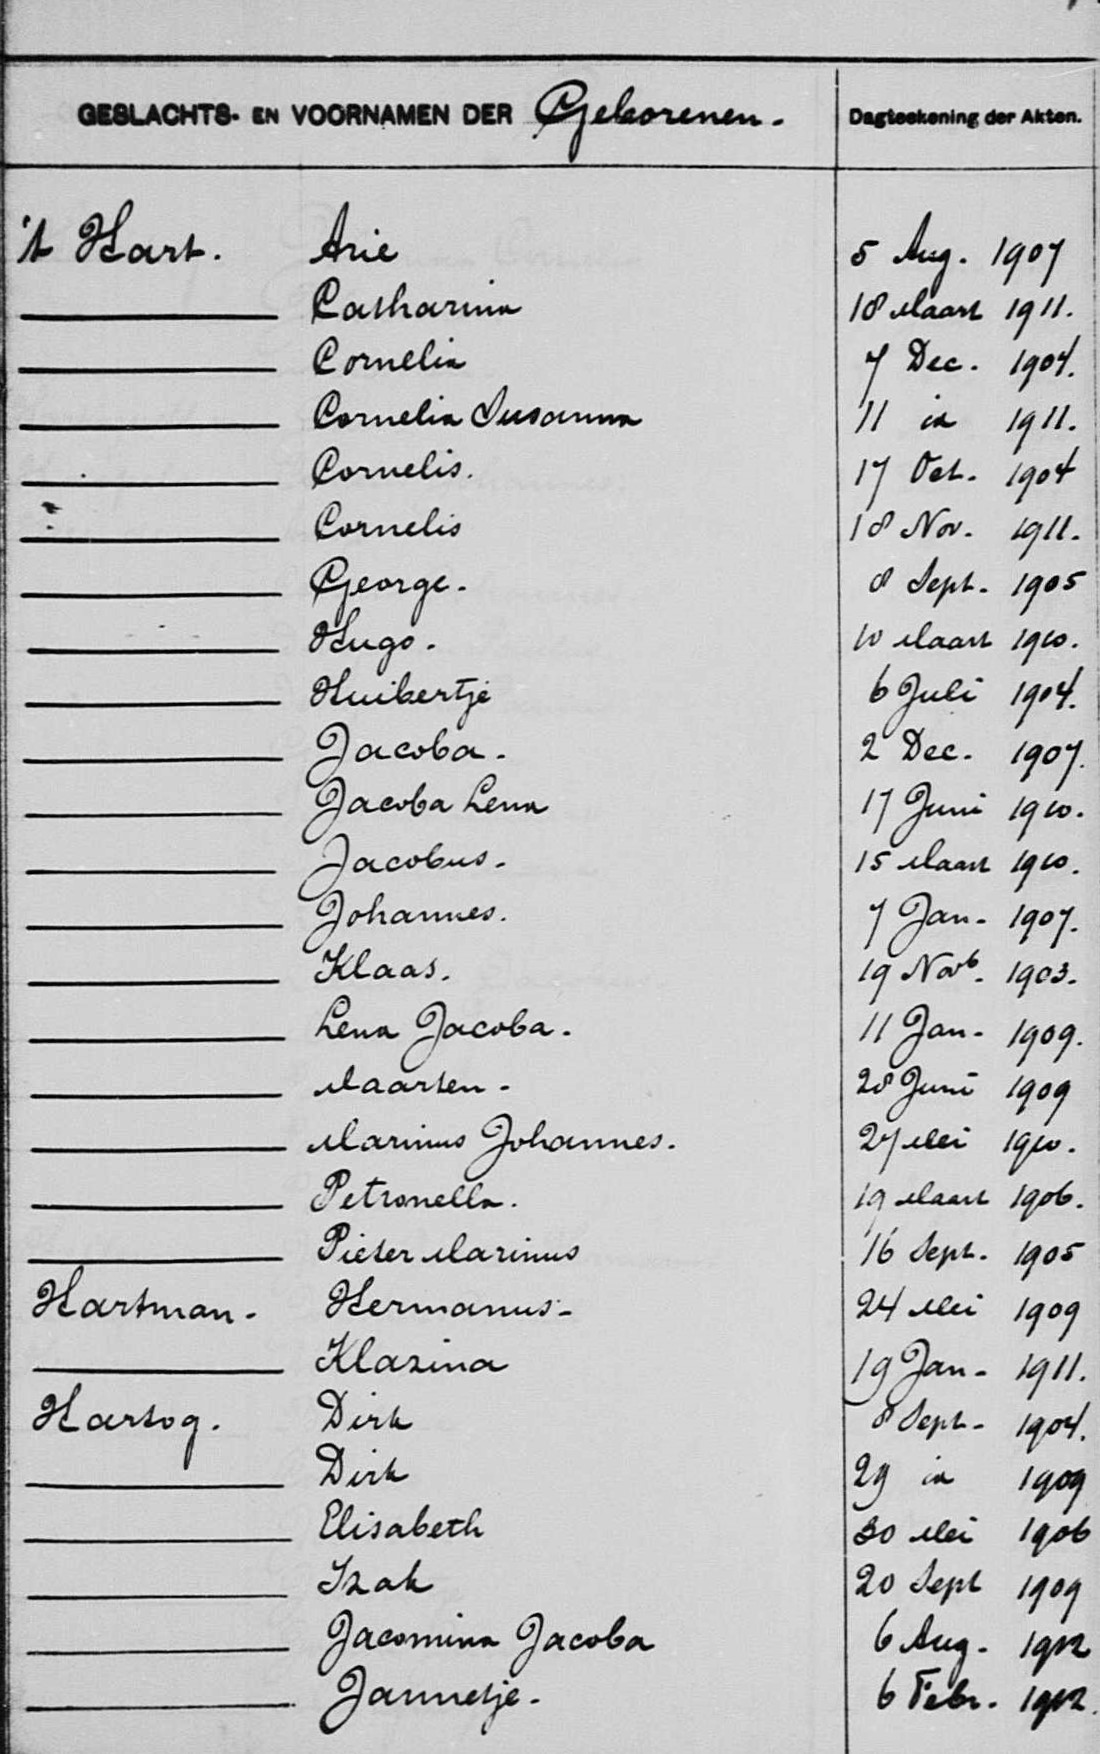 GESLACHTS- EN VOORNAMEN DER Geborenen. Dagteekening der Akten.
't Hart. Arie 5 Aug. 1907
Catharina 18 Maart 1911.
Cornelia 7 Dec. 1904.
Cornelia Susanna 11 id 1911.
Cornelis. 17 Oct. 1904
Cornelis 18 Nov. 1911.
George. 8 Sept. 1905
Hugo. 10 Maart 1910.
Huibertje 6 Juli 1904.
Jacoba. 2 Dec. 1907.
Jacoba Lena 17 Juni 1910.
Jacobus. 15 Maart 1910.
Johannes. 7 Jan. 1907.
Klaas. 19 Novb. 1903.
Lena Jacoba. 11 Jan. 1909.
Maarten. 28 Juni 1909
Marinus Johannes. 27 Mei 1910.
Petronella. 19 Maart 1906.
Pieter Marinus 16 Sept. 1905
Hartman. Hermanus. 24 Mei 1909
Klazina 19 Jan. 1911.
Hartog. Dirk 8 Sept. 1904.
Dirk 29 id 1909
Elisabeth 30 Mei 1906
Izak 20 Sept 1909
Jacomina Jacoba 6 Aug. 1912
Jannetje. 6 Febr. 1912.